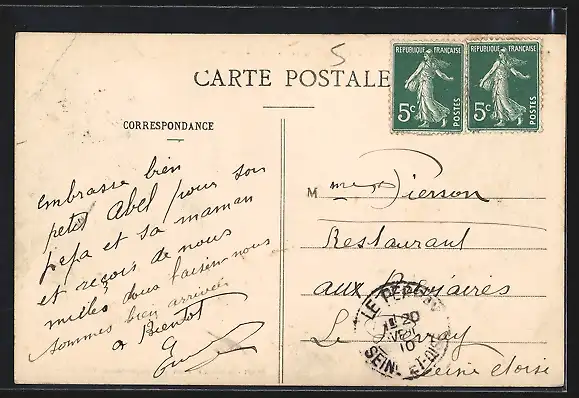 5
CARTE POSTALE
REPUBLIQUE FRANÇAISE
5c
POSTES
REPUBLIQUE FRANÇAISE
5c
POSTES
CORRESPONDANCE
embrasse bien
petit Abel pour son
pepa et sa maman
et reçois de nous
milles doux baisers nous
sommes bien arrivés
a Bientot
M me Pierson
Restaurant
aux
Le
Seine et oise
LE
20
10
SEINE-ET-OISE